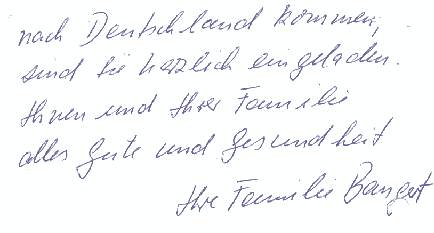 nach Deutschland kommen,
sind Sie herzlich eingeladen.
Ihnen und Ihrer Familie
alles Gute und Gesundheit
Ihre Familie Bangert